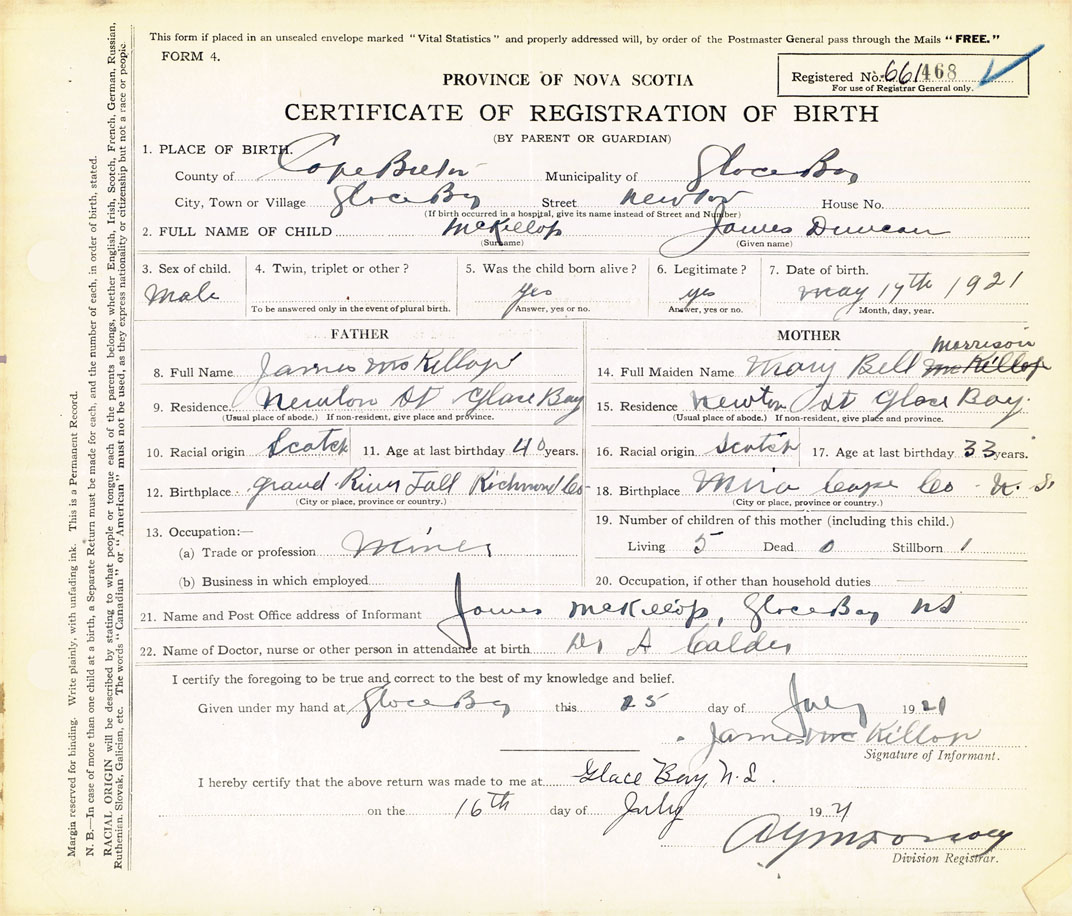 This form if placed in an unsealed envelope marked "Vital Statistics" and properly addressed will, by order of the Postmaster General pass through the Mails "FREE."
FORM 4.
Registered No. 661468
For use of Registrar General only.
PROVINCE OF NOVA SCOTIA
CERTIFICATE OF REGISTRATION OF BIRTH
(BY PARENT OR GUARDIAN)
1. PLACE OF BIRTH.
County of Cape Breton Municipality of Glace Bay
City, Town or Village Glace Bay Street Newton House No.
(If birth occurred in a hospital, give its name instead of Street and Number)
2. FULL NAME OF CHILD McKillop James Duncan
(Surname) (Given name)
3. Sex of child. 4. Twin, triplet or other? 5. Was the child born alive? 6. Legitimate? 7. Date of birth.
Male yes yes May 17th 1921
To be answered only in the event of plural birth. Answer, yes or no. Answer, yes or no. Month, day, year.
FATHER
8. Full Name James McKillop
9. Residence Newton St Glace Bay
(Usual place of abode.) If non-resident, give place and province.
10. Racial origin Scotch 11. Age at last birthday 40 years.
12. Birthplace Grand River Fall Richmond Co
(City or place, province or country.)
13. Occupation:—
(a) Trade or profession Miner
(b) Business in which employed
MOTHER
Morrison
14. Full Maiden Name Mary Bell McKillop
15. Residence Newton St Glace Bay.
(Usual place of abode.) If non-resident, give place and province.
16. Racial origin Scotch 17. Age at last birthday 33 years.
18. Birthplace Mira Cape Co N.S.
(City or place, province or country.)
19. Number of children of this mother (including this child.)
Living 5 Dead 0 Stillborn 1
20. Occupation, if other than household duties —
21. Name and Post Office address of Informant James McKillop, Glace Bay NS
22. Name of Doctor, nurse or other person in attendance at birth Dr A Calder
I certify the foregoing to be true and correct to the best of my knowledge and belief.
Given under my hand at Glace Bay this 25 day of July 1921
James McKillop
Signature of Informant.
I hereby certify that the above return was made to me at Glace Bay, N.S.
on the 16th day of July 1921
Division Registrar.
Margin reserved for binding. Write plainly, with unfading ink. This is a Permanent Record.
N. B.—In case of more than one child at a birth, a Separate Return must be made for each, and the number of each, in order of birth, stated.
RACIAL ORIGIN will be described by stating to what people or tongue each of the parents belongs, whether English, Irish, Scotch, French, German, Russian,
Ruthenian, Slovak, Galician, etc. The words "Canadian" or "American" must not be used, as they express nationality or citizenship but not a race or people